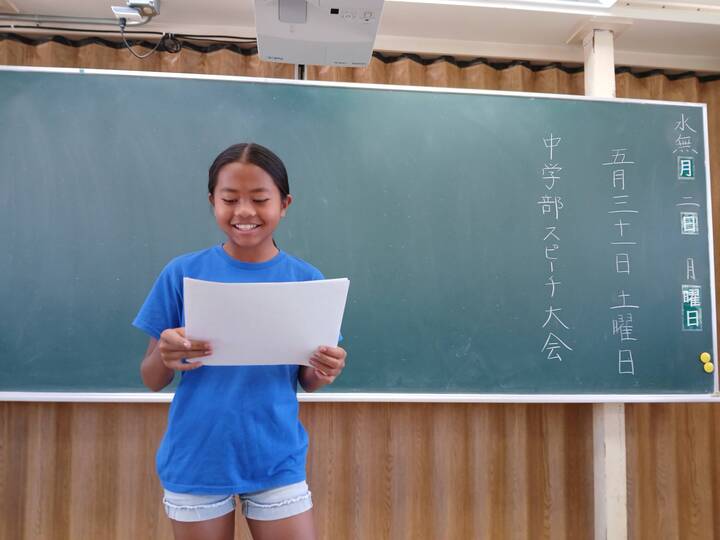 水無月二日月曜日
五月三十一日土曜日
中学部スピーチ大会